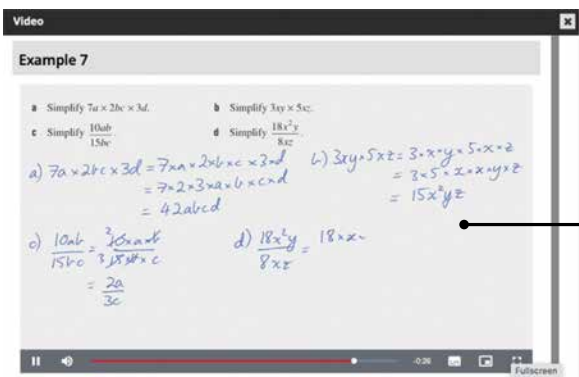 Video
Example 7
a Simplify 7a × 2bc × 3d.
b Simplify 3xy × 5xz.
c Simplify 10ab/15bc
d Simplify 18x²y/8xz
a) 7a × 2bc × 3d = 7×a × 2×b×c × 3×d
= 7×2×3×a×b×c×d
= 42abcd
b) 3xy × 5xz = 3·x·y × 5·x·z
= 3×5×x×x×y×z
= 15x²yz
c) 10ab/15bc = ²10×a×b/₃15×b×c
= 2a/3c
d) 18x²y/8xz = 18×x×
-0:26
Fullscreen